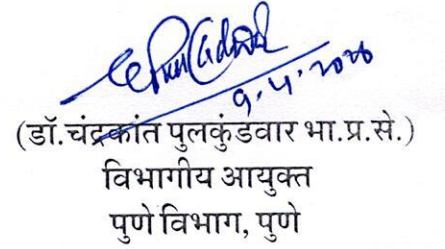 (डॉ.चंद्रकांत पुलकुंडवार भा.प्र.से.)
विभागीय आयुक्त
पुणे विभाग, पुणे